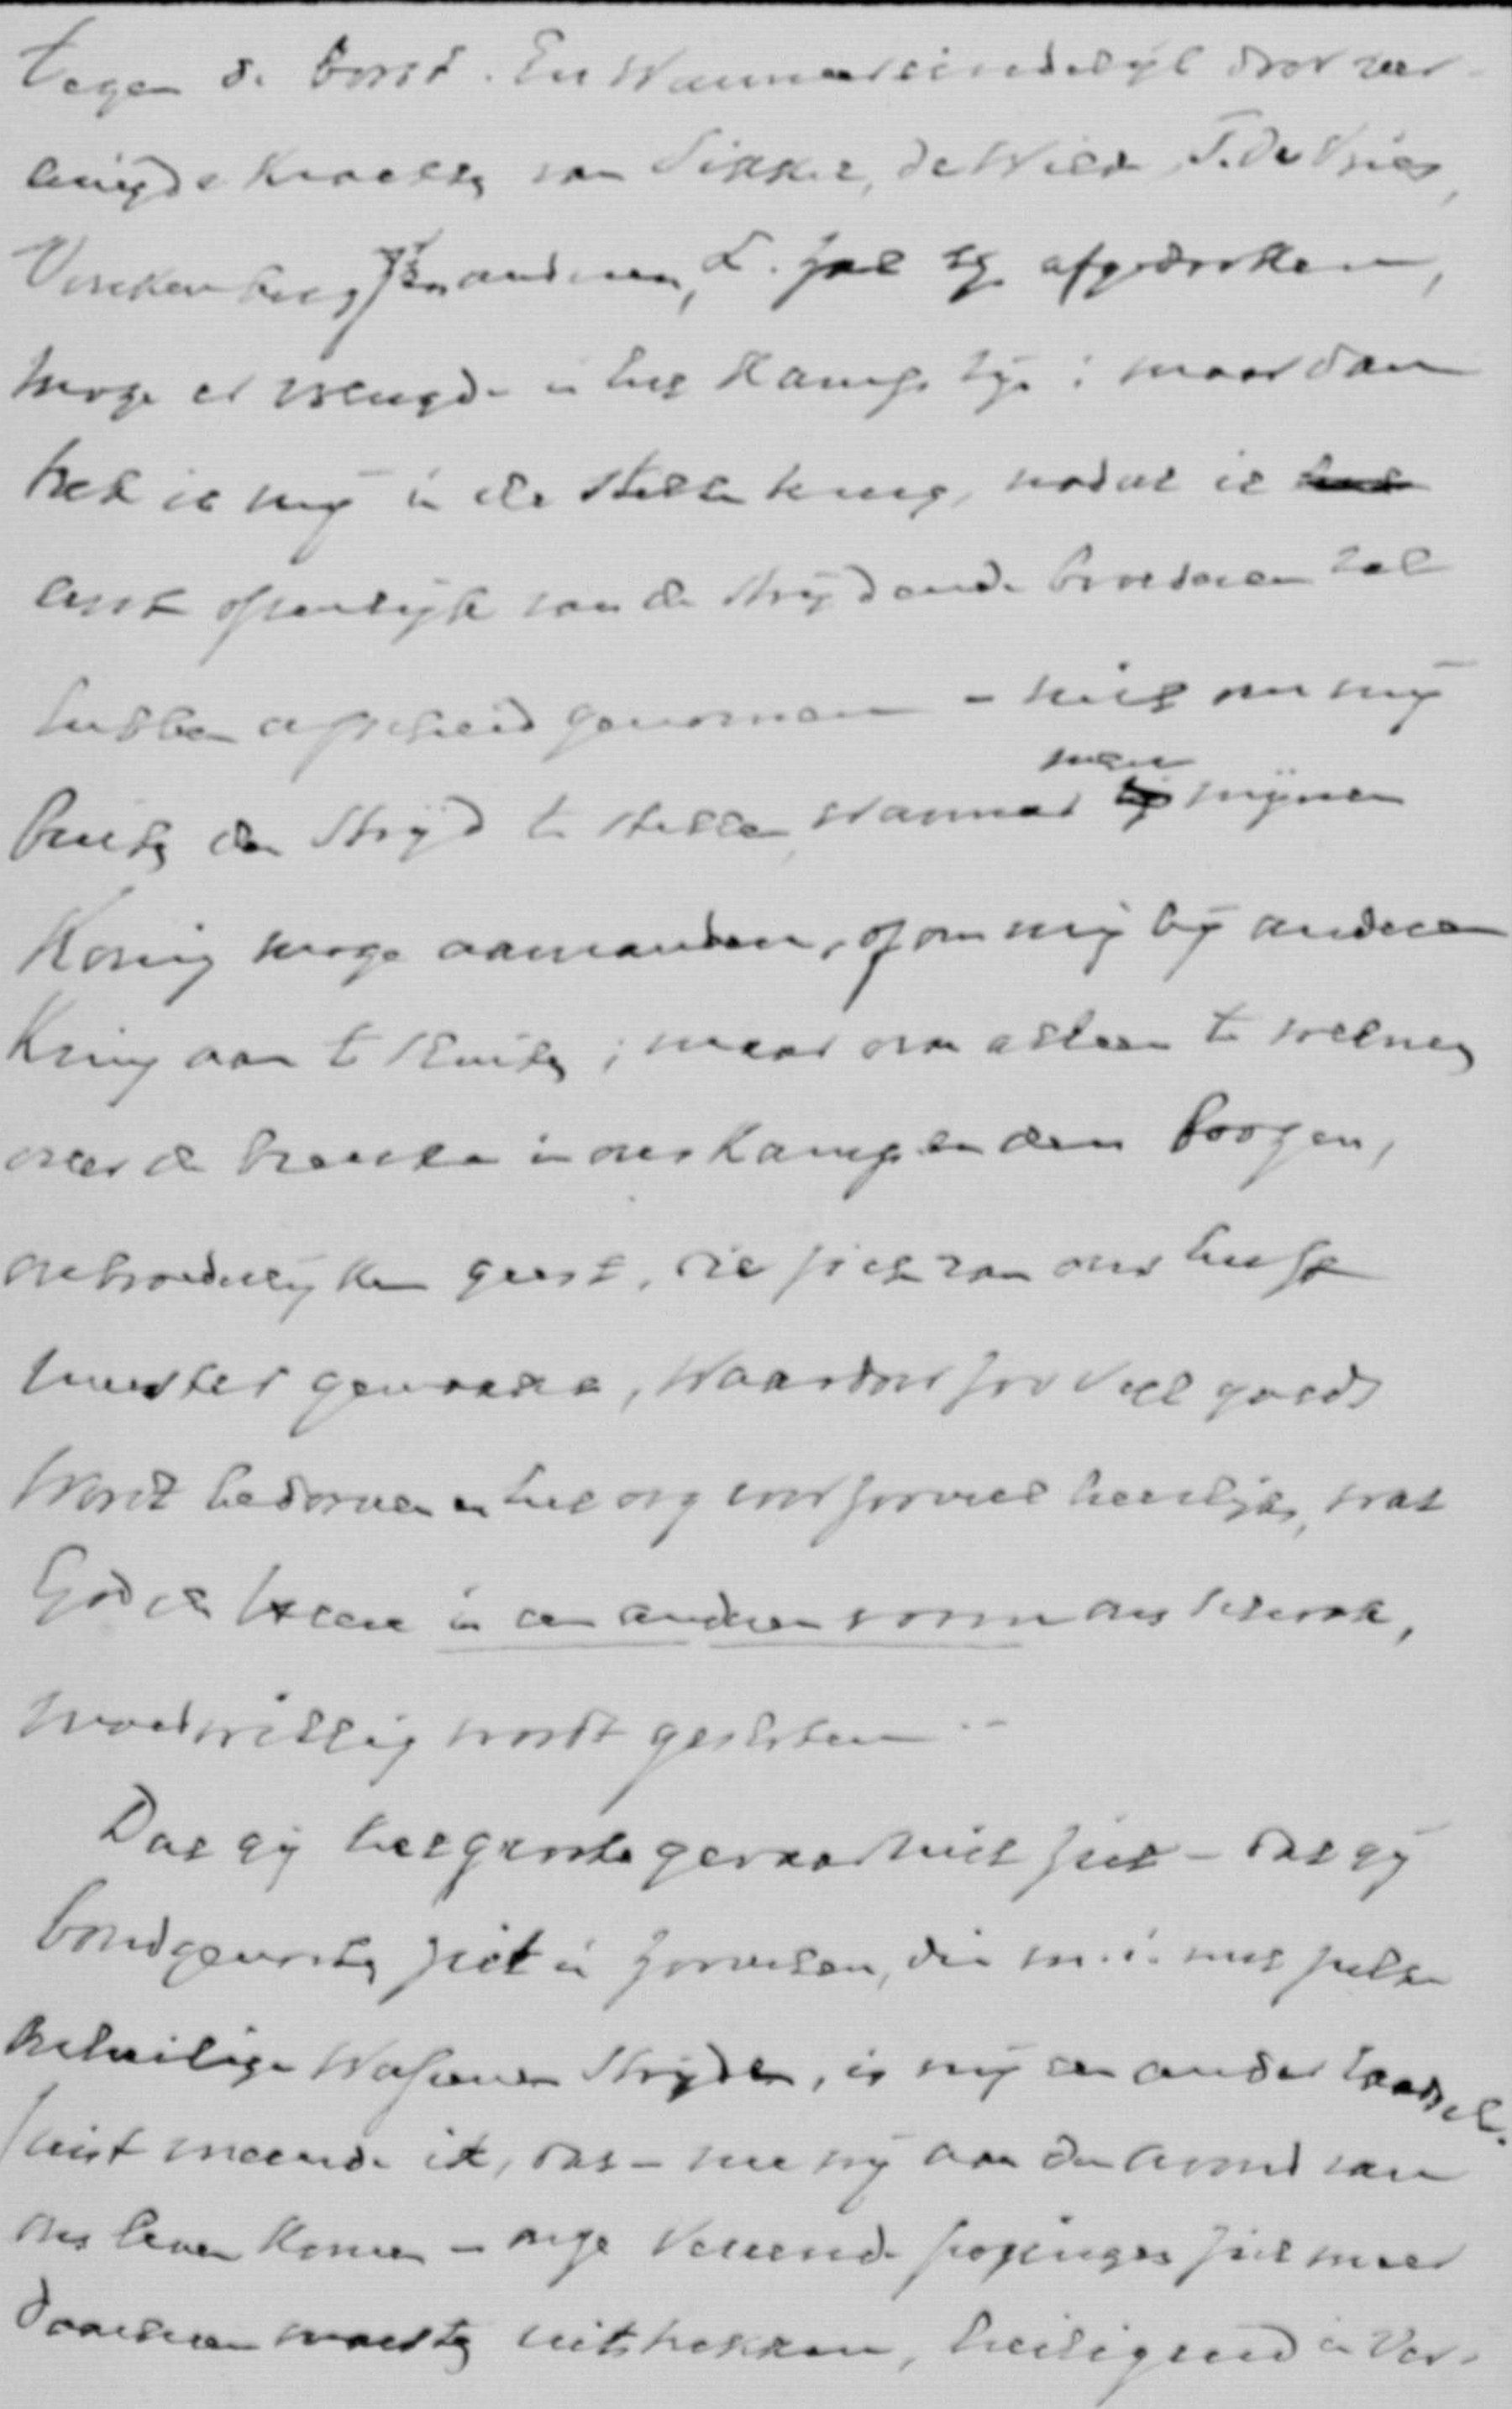 tegen de borst. En wanneer eindelijk door ver-
eenigde krachten van Sikkel, de Wilde, S. de Vries,
en anderen, L. zal zijn afgedrukt,
moge er vreugde in het kamp zijn; maar dan
trek ik mij in de stilte terug, nadat ik
eerst openlijk van de strijdende broederen zal
hebben afscheid genomen – niet om mij
buiten den strijd te stellen, wanneer men mijnen
Koning moge aanranden, of om mij bij anderen
Kring aan te sluiten; maar om alleen te weenen
over de breuke in ons kamp en den boozen,
onbroederlijken geest, die zich van ons heeft
meester gemaakt, waardoor zooveel goeds
wordt bedorven en het oog voor zooveel heerlijks, wat
God de Heere in een anderen vorm ons schonk,
moedwillig wordt gesloten.
Dat gij het groote gevaar niet ziet – dat gij
bondgenooten ziet in zoovelen, die m.i. met zulke
onheilige wapenen strijden, is mij een ander raadsel.
Juist meende ik, dat – nu wij aan den avond van
ons leven komen – onze vereende pogingen zich meer
daarheen moesten uitstrekken, heiligend in ver-